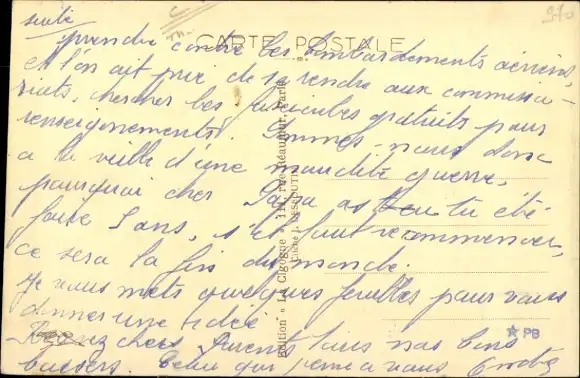 suite
CARTE POSTALE
prendre contre les bombardements aériens,
et l'on ait prie de se rendre aux commissa-
riats, chercher les fascicules gratuits pour
renseignements. Sommes-nous donc
a la veille d'une maudite guerre,
pourquoi cher Papa as tu été
faire 5 ans, s'il faut recommencer,
ce sera la fin du monde.
Je vous mets quelques feuilles pour vous
donner une idée
chers Parents tous nos bons
baisers. Celui qui pense a vous
Edition « La Cigogne », 111, rue Réaumur, Paris
PB